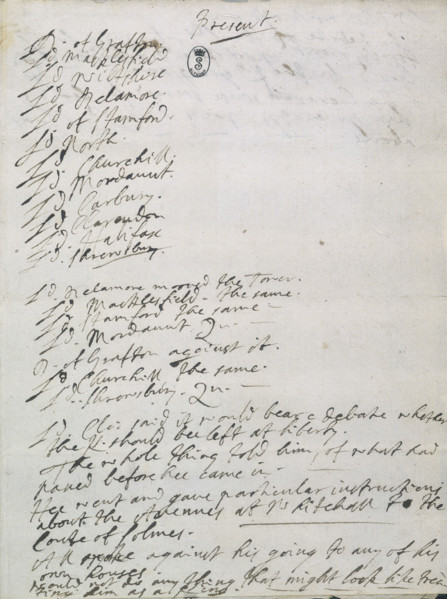 Present.
D. of Grafton.
Ld. Macklesfield
Ld. Wiltshire
Ld. Delamore.
Ld. of Stamford.
Ld. North.
Ld. Churchill.
Ld. Mordaunt.
Ld. Carbury.
Ld. Clarendon
Ld. Halifax
Ld. Shrewsbury.
Ld. Delamore mooved the Tower.
Ld. Macklesfield - the same.
Ld. Stamford the same -
Ld. Mordaunt. Qu. -
D. of Grafton against it.
Ld. Churchill the same.
Ld. Shrewsbury. Qu. -
Ld. Cla: said it would beare debate whether
the K. should bee left at liberty.
The whole thing told him, of what had
passed before hee came in.
Hee went and gave particular instructions
about the Avennes at Whitehall to the
Conte of Solmes.
All spoke against his going to any of his
own houses
would not do any thing that might look like trea
ting him as a King